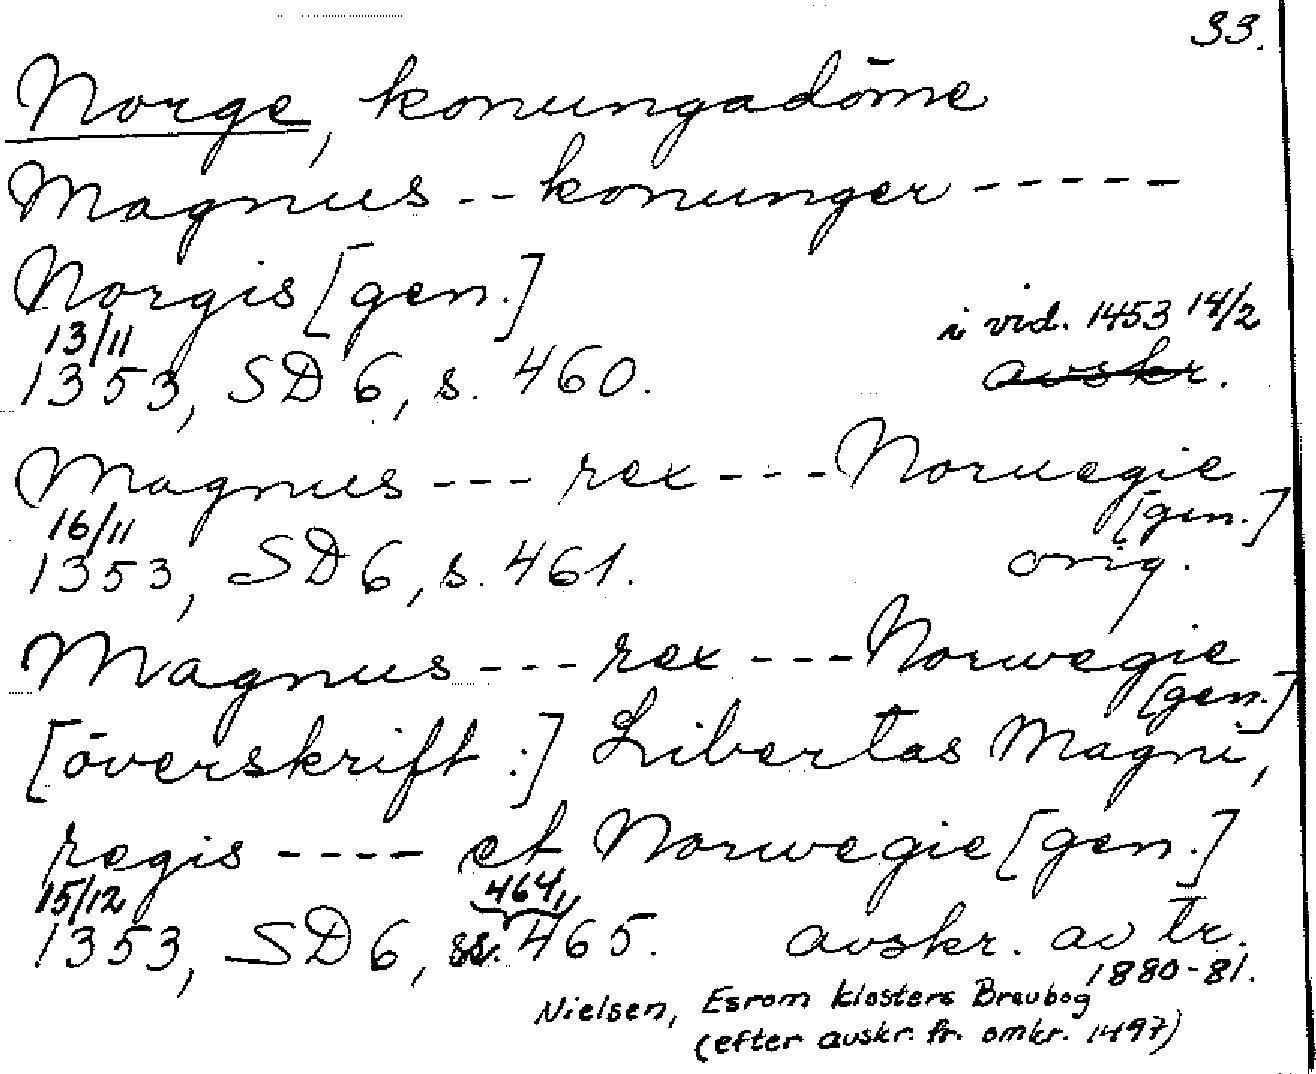 33.
Norge, konungadöme
Magnus -- konunger -----
Norgis [gen.]
13/11 i vid. 1453 14/2
1353, SD 6, s. 460. avskr.
Magnus --- rex --- Noruegie
[gen.]
16/11
1353, SD 6, s. 461. orig.
Magnus --- rex --- Norwegie
[gen.]
[överskrift:] Libertas Magni,
regis ---- et Norwegie [gen.]
15/12 464,
1353, SD 6, ss. 465. avskr. av tr.
1880-81.
Nielsen, Esrom klosters Brevbog
(efter avskr. fr. omkr. 1497)